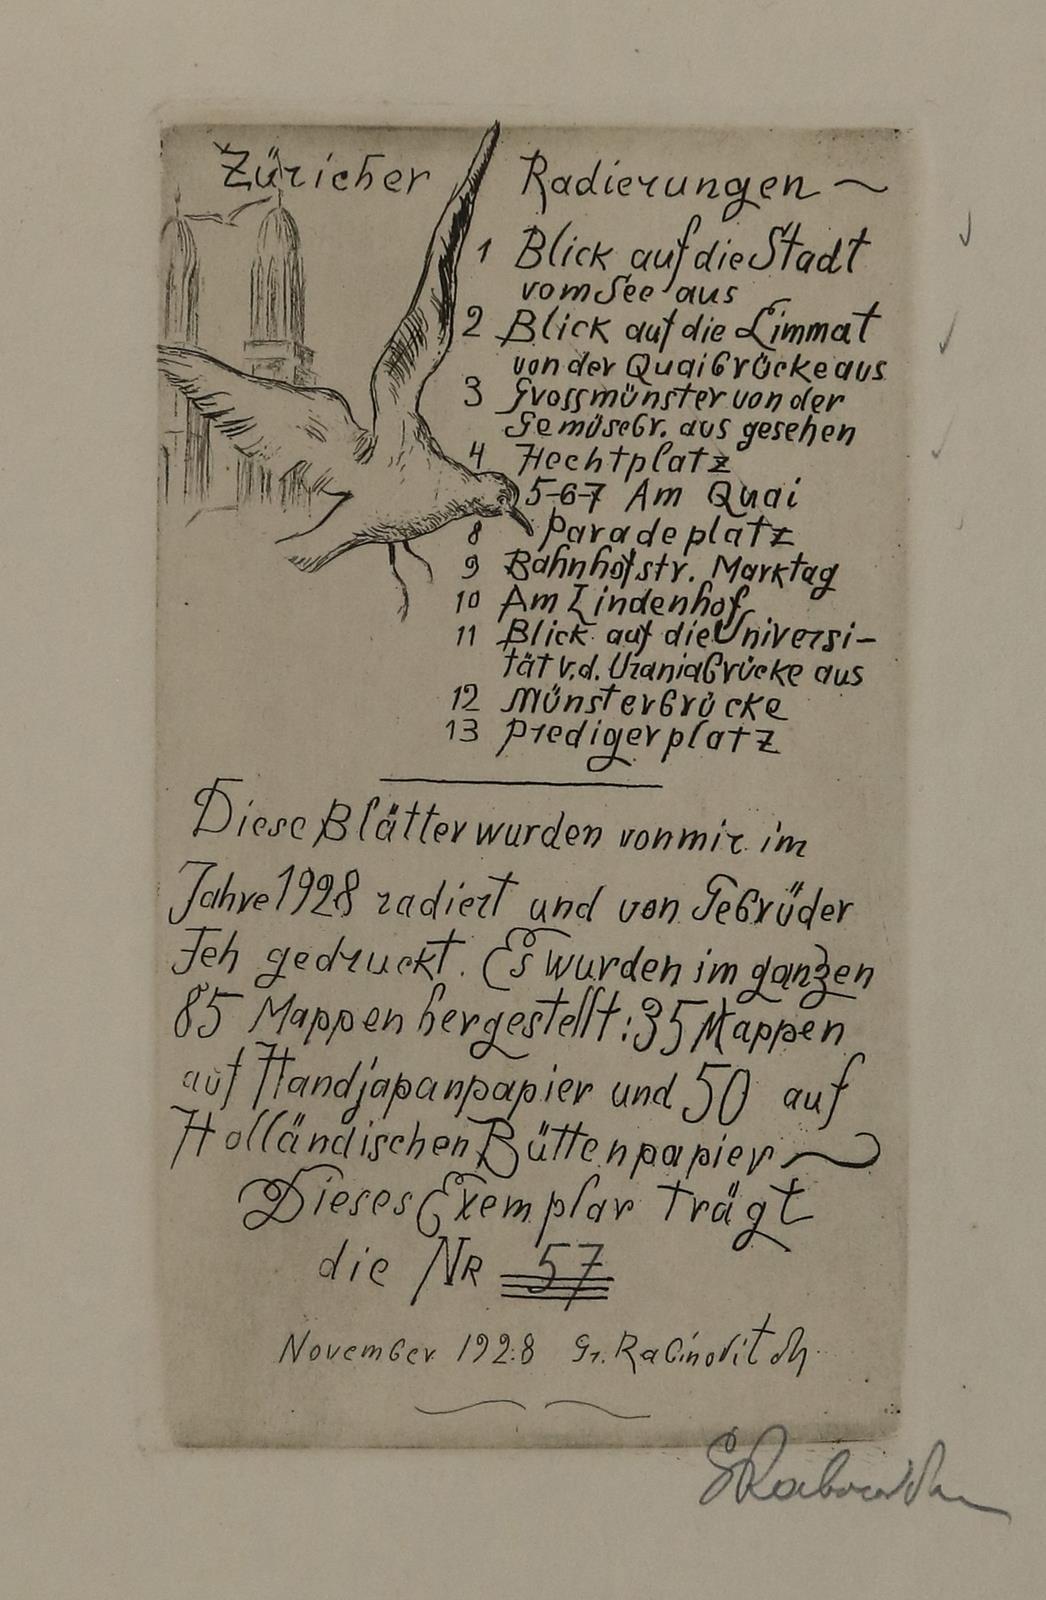 Züricher Radierungen ~
1 Blick auf die Stadt
vom See aus
2 Blick auf die Limmat
von der Quaibrücke aus
3 Grossmünster von der
Gemüsebr. aus gesehen
4 Hechtplatz
5-6-7 Am Quai
8 Paradeplatz
9 Bahnhofstr. Marktag
10 Am Lindenhof
11 Blick auf die Universi-
tät v.d. Uraniabrücke aus
12 Münsterbrücke
13 Predigerplatz
Diese Blätter wurden von mir im
Jahre 1928 radiert und von Gebrüder
Feh gedruckt. Es wurden im ganzen
85 Mappen hergestellt: 35 Mappen
auf Handjapanpapier und 50 auf
Holländischen Büttenpapier ~
Dieses Exemplar trägt
die NR 57
November 1928 Gr. Rabinovitch